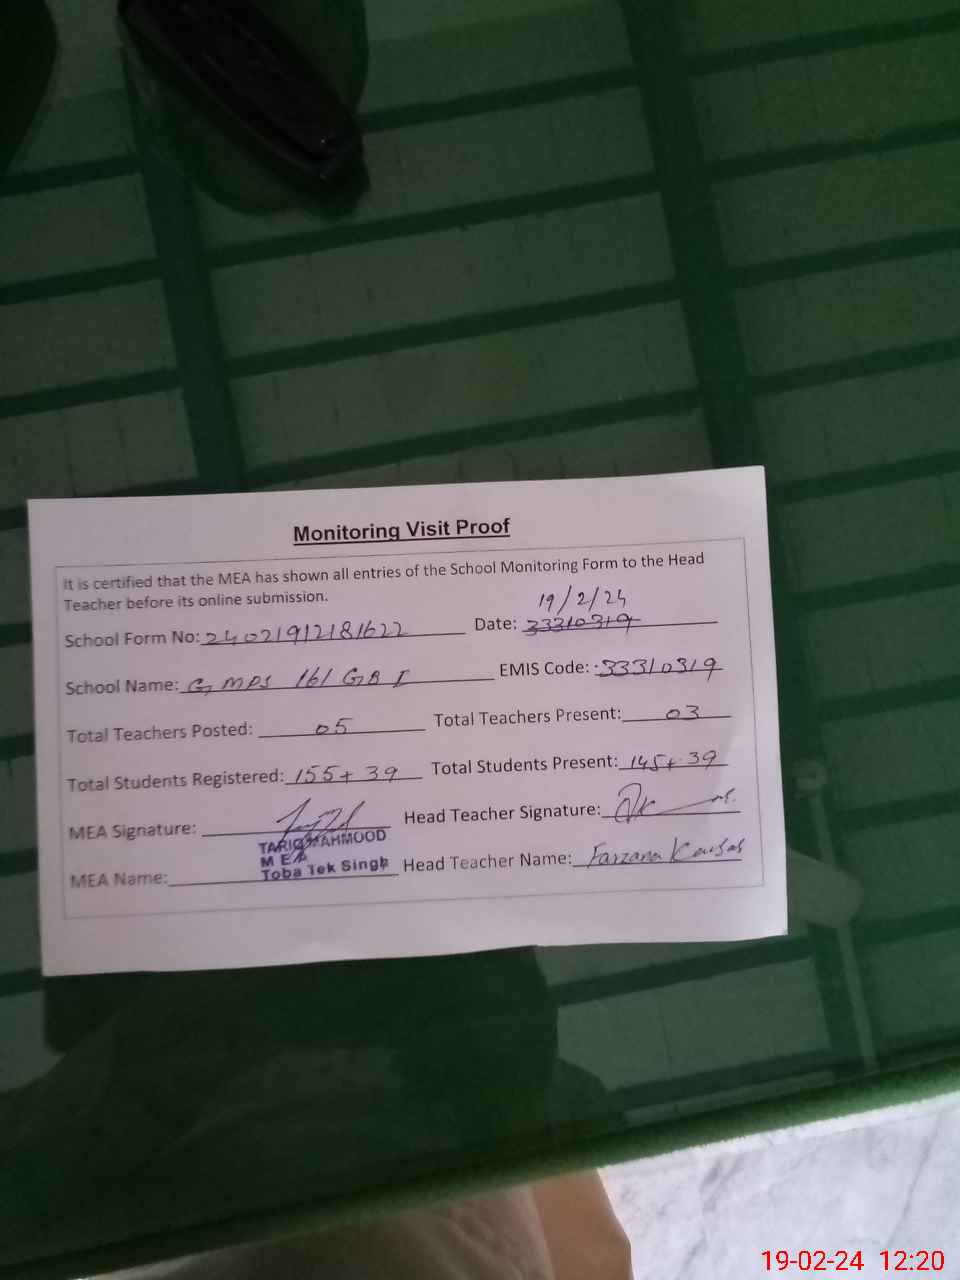 Monitoring Visit Proof
It is certified that the MEA has shown all entries of the School Monitoring Form to the Head
Teacher before its online submission.
19/2/24
School Form No: 24021912181622 Date: 33310319
School Name: G MPS 161 GB I EMIS Code: 33310319
Total Teachers Posted: 05 Total Teachers Present: 03
Total Students Registered: 155+39 Total Students Present: 145+39
MEA Signature: Head Teacher Signature:
TARIQ MAHMOOD
MEA
Toba Tek Singh
MEA Name: Head Teacher Name: Farzana Kausas
19-02-24 12:20